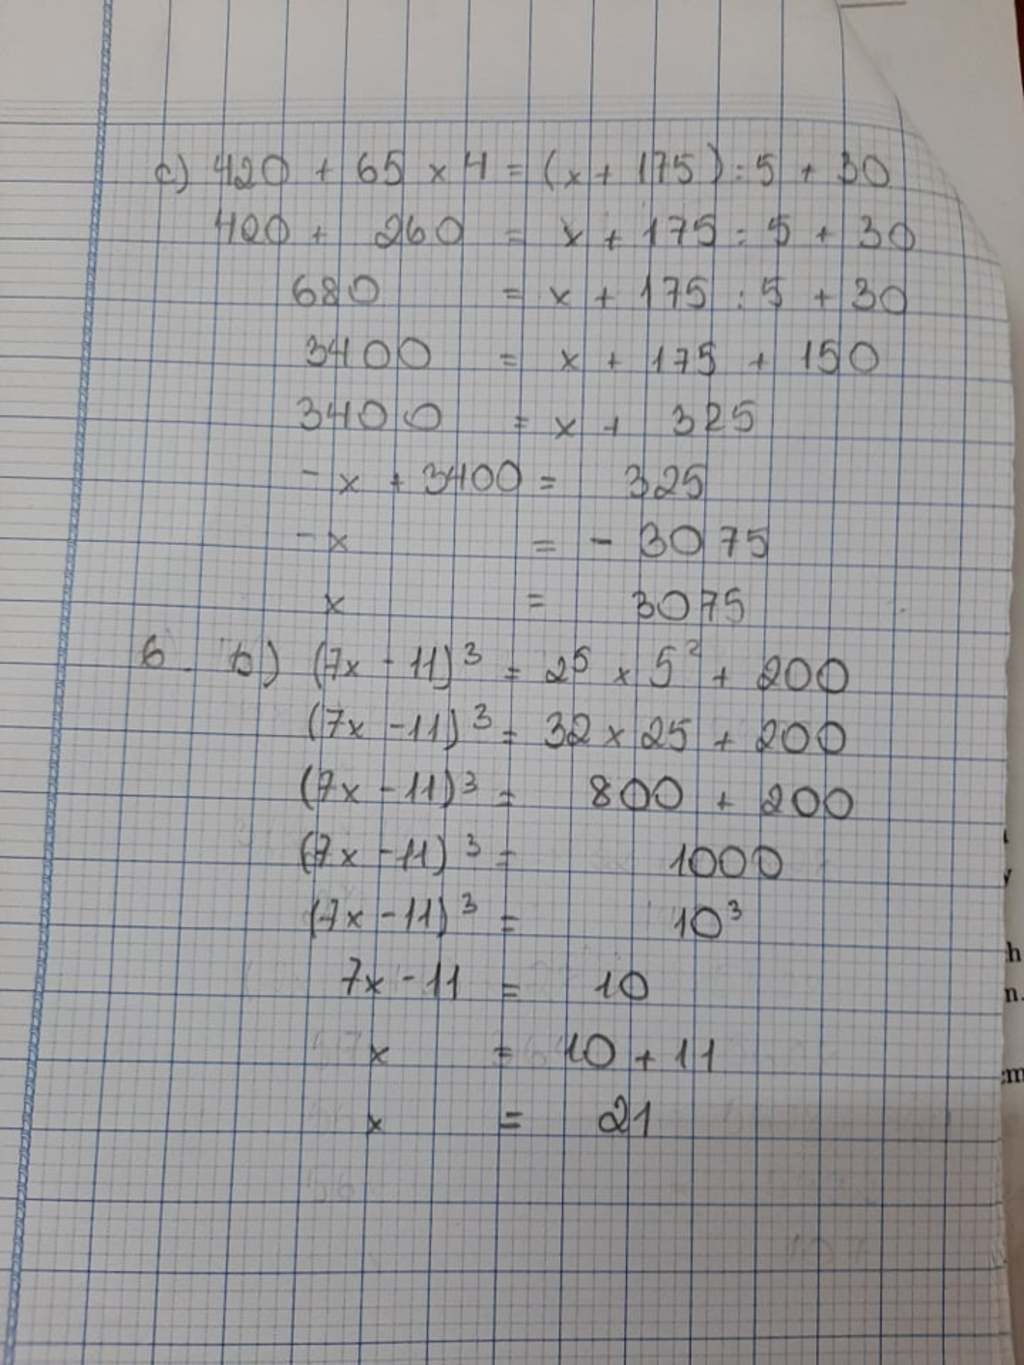 c) 420 + 65 x 4 = (x + 175) : 5 + 30
420 + 260 = x + 175 : 5 + 30
680 = x + 175 : 5 + 30
3400 = x + 175 + 150
3400 = x + 325
- x + 3400 = 325
- x = - 3075
x = 3075
6. b) (7x - 11)³ = 2⁵ x 5² + 200
(7x - 11)³ = 32 x 25 + 200
(7x - 11)³ = 800 + 200
(7x - 11)³ = 1000
(7x - 11)³ = 10³
7x - 11 = 10
x = 10 + 11
x = 21